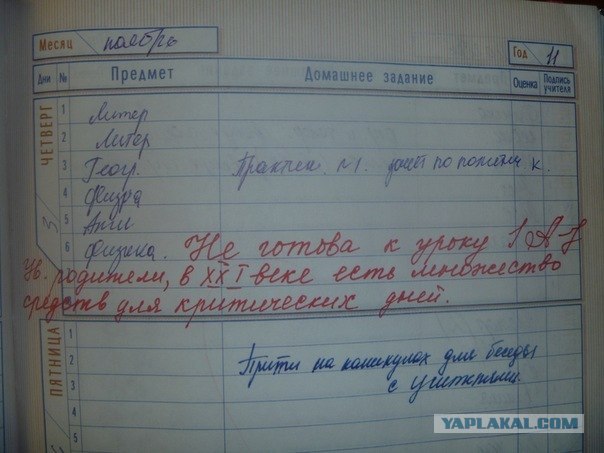 Месяц ноябрь Год 11
Дни № Предмет Домашнее задание Оценка Подпись учителя
ЧЕТВЕРГ 3
1 Литер
2 Литер
3 Геогр. Практич. №1. по политич. к.
4 Физра
5 Англ
6 Физика. Не готова к уроку
Ув. родители, в XXI веке есть множество
средств для критических дней.
ПЯТНИЦА
1 Прийти на каникулах для беседы
2 с учителями.
3
4
5
YAPLAKAL.COM